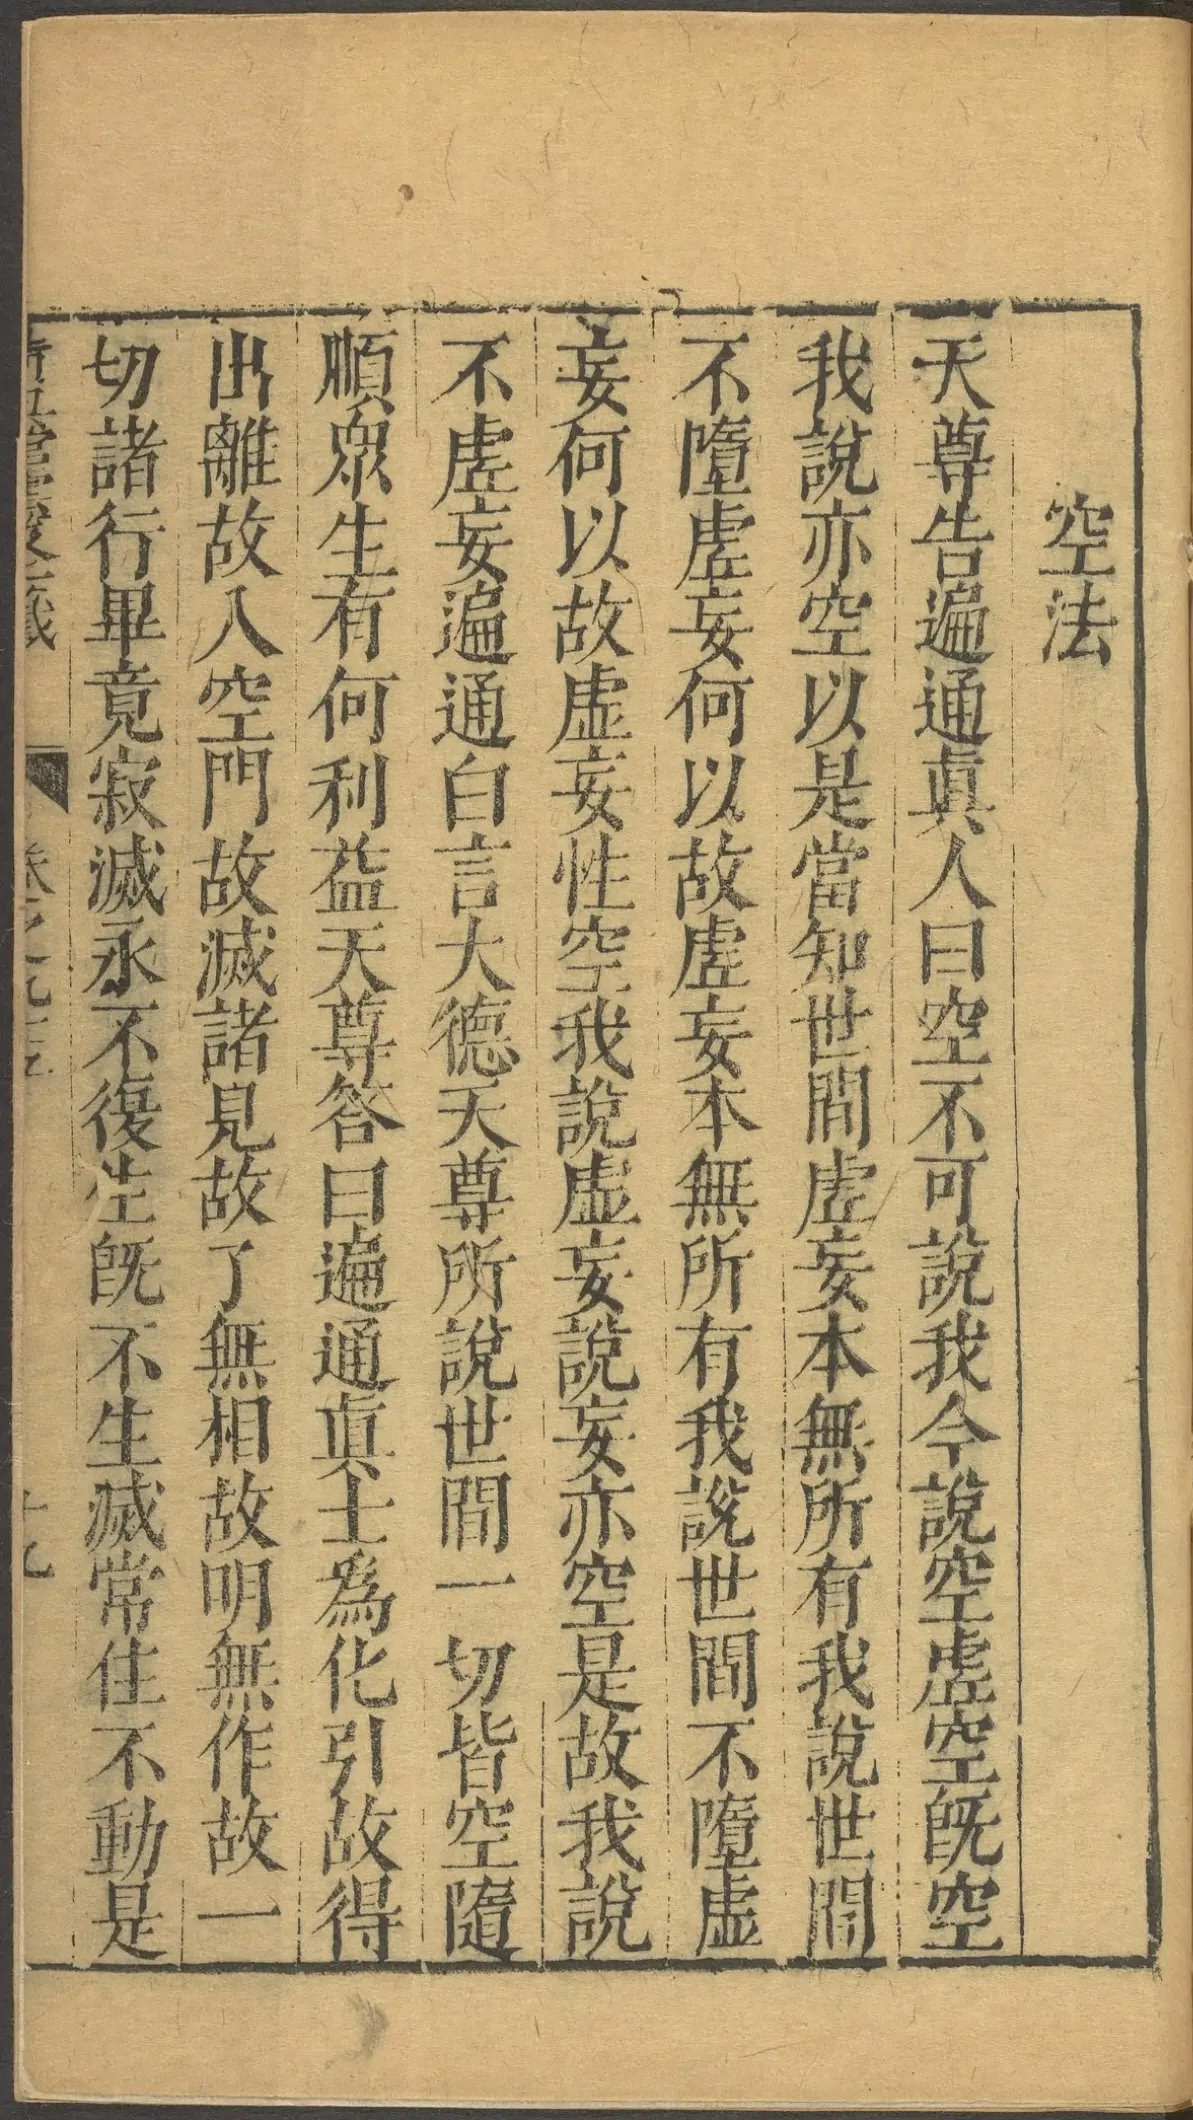 空法
天尊告遍通眞人曰空不可說我今說空虛空旣空
我說亦空以是當知世間虛妄本無所有我說世間
不墮虛妄何以故虛妄本無所有我說世間不墮虛
妄何以故虛妄性空我說虛妄說妄亦空是故我說
不虛妄遍通白言大德天尊所說世間一切皆空隨
順眾生有何利益天尊答曰遍通眞士為化引故得
出離故入空門故滅諸見故了無相故明無作故一
切諸行畢竟寂滅永不復生旣不生滅常住不動是